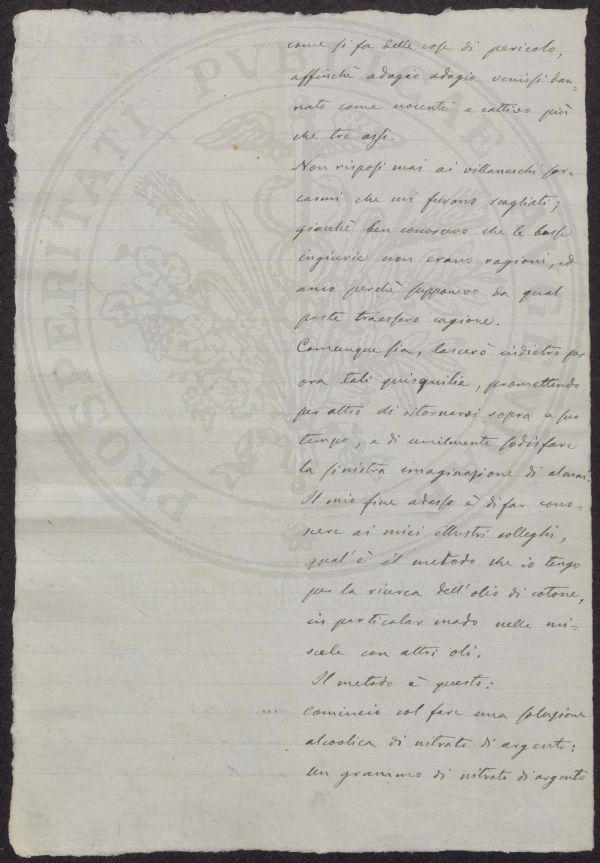 come si fa delle cose di pericolo,
affinchè adagio adagio venissi dan-
nato come nocente e cattivo più
che tre assi.
Non risposi mai ai villaneschi sar-
casmi che mi furono scagliati;
giacchè ben conoscevo che le basse
ingiurie non erano ragioni, ed
anco perchè supponevo da qual
parte traessero cagione.
Comunque sia, lascerò indietro per
ora tali quisquilie, promettendo
per altro di ritornarvi sopra a suo
tempo, e di umilmente sodisfare
la sinistra imaginazione di alcuni.
Il mio fine adesso è di far cono-
scere ai miei illustri colleghi,
qual'è il metodo che io tengo
per la ricerca dell'olio di cotone,
in particolar modo nelle mi-
scele con altri oli.
Il metodo è questo:
Comincio col fare una soluzione
alcoolica di nitrato di argento:
Un grammo di nitrato di argento
PROSPERITATI PVBLICAE